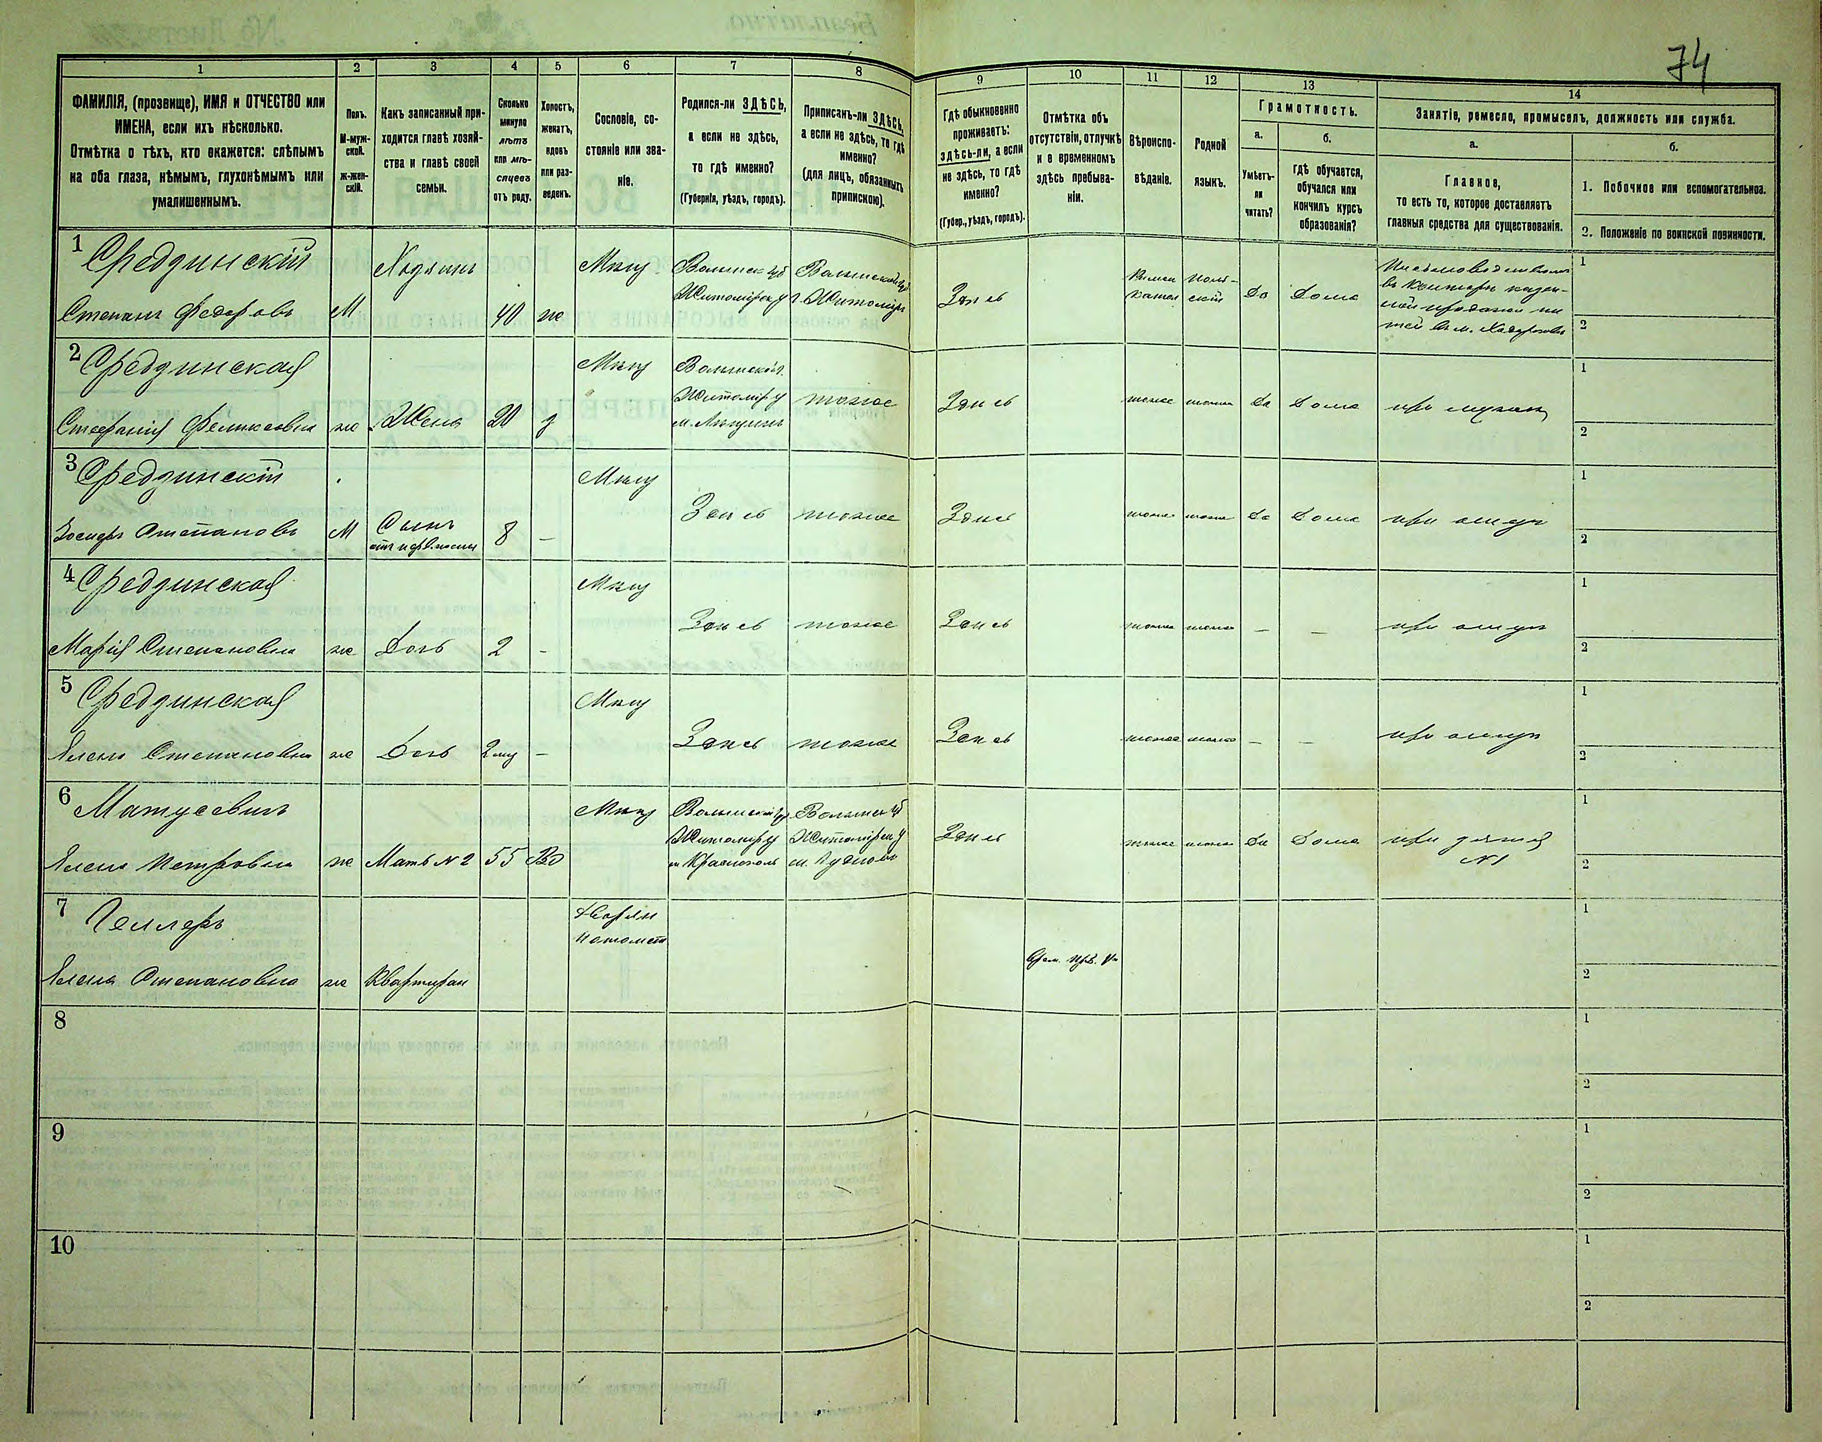 74
1
2
3
4
5
6
7
8
9
10
11
12
13
14
ФАМИЛІЯ, (прозвище), ИМЯ и ОТЧЕСТВО или
ИМЕНА, если ихъ нѣсколько.
Отмѣтка о тѣхъ, кто окажется: слѣпымъ
на оба глаза, нѣмымъ, глухонѣмымъ или
умалишеннымъ.
Полъ.
М-муж-
ской.
Ж-жен-
скій.
Какъ записанный при-
ходится главѣ хозяй-
ства и главѣ своей
семьи.
Сколько
минуло
лѣтъ
или мѣ-
сяцевъ
отъ роду.
Холостъ,
женатъ,
вдовъ
или раз-
веденъ.
Сословіе, со-
стояніе или зва-
ніе.
Родился-ли ЗДѢСЬ,
а если не здѣсь,
то гдѣ именно?
(Губернія, уѣздъ, городъ).
Приписанъ-ли ЗДѢСЬ,
а если не здѣсь, то гдѣ
именно?
(для лицъ, обязанныхъ
припискою).
Гдѣ обыкновенно
проживаетъ:
здѣсь-ли, а если
не здѣсь, то гдѣ
именно?
(Губер., уѣздъ, городъ).
Отмѣтка объ
отсутствіи, отлучкѣ
и о временномъ
здѣсь пребыва-
ніи.
Вѣроиспо-
вѣданіе.
Родной
языкъ.
Грамотность.
а.
б.
Умѣетъ-
ли
читать?
Гдѣ обучается,
обучался или
кончилъ курсъ
образованія?
Занятіе, ремесло, промыселъ, должность или служба.
а.
б.
Главное,
то есть то, которое доставляетъ
главныя средства для существованія.
1. Побочное или вспомогательное.
2. Положеніе по воинской повинности.
1
Средзинскій
Степанъ Федоровъ
М
Хозяинъ
40
же
Мѣщ
Здѣсь
Да
Дома
1
2
2
Средзинская
Стефанія Феликсовна
же
Жена
20
з
Мѣщ
тоже
Здѣсь
тоже
тоже
Да
Дома
при мужѣ
1
2
3
Средзинскій
Іосифъ Степановъ
М
Сынъ
8
—
Мѣщ
Здѣсь
тоже
Здѣсь
тоже
тоже
Да
Дома
при отцѣ
1
2
4
Средзинская
Марія Степановна
же
Дочь
2
-
Мѣщ
Здѣсь
тоже
Здѣсь
тоже
тоже
—
—
при отцѣ
1
2
5
Средзинская
Елена Степановна
же
Дочь
—
Мѣщ
Здѣсь
тоже
Здѣсь
тоже
тоже
—
—
при отцѣ
1
2
6
Матусевичъ
Елена Петровна
же
Мать №2
55
Вд
Мѣщ
Здѣсь
тоже
тоже
Да
Дома
при зятѣ
№1
1
2
7
Геллеръ
Елена Степановна
же
Дворян
Потомств
1
2
8
1
2
9
1
2
10
1
2